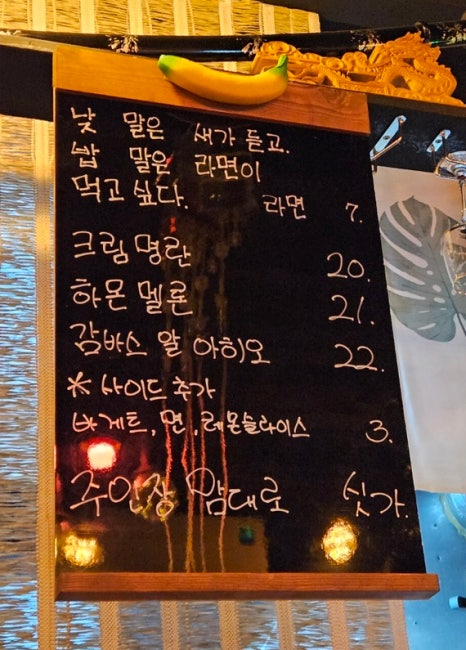 낮 말은 새가 듣고.
밥 말은 라면이
먹고 싶다.
라면 7.
크림 명란 20.
하몬 멜론 21.
감바스 알 아히오 22.
* 사이드 추가
바게트, 면, 레몬슬라이스 3.
주인장 맘대로 싯가.